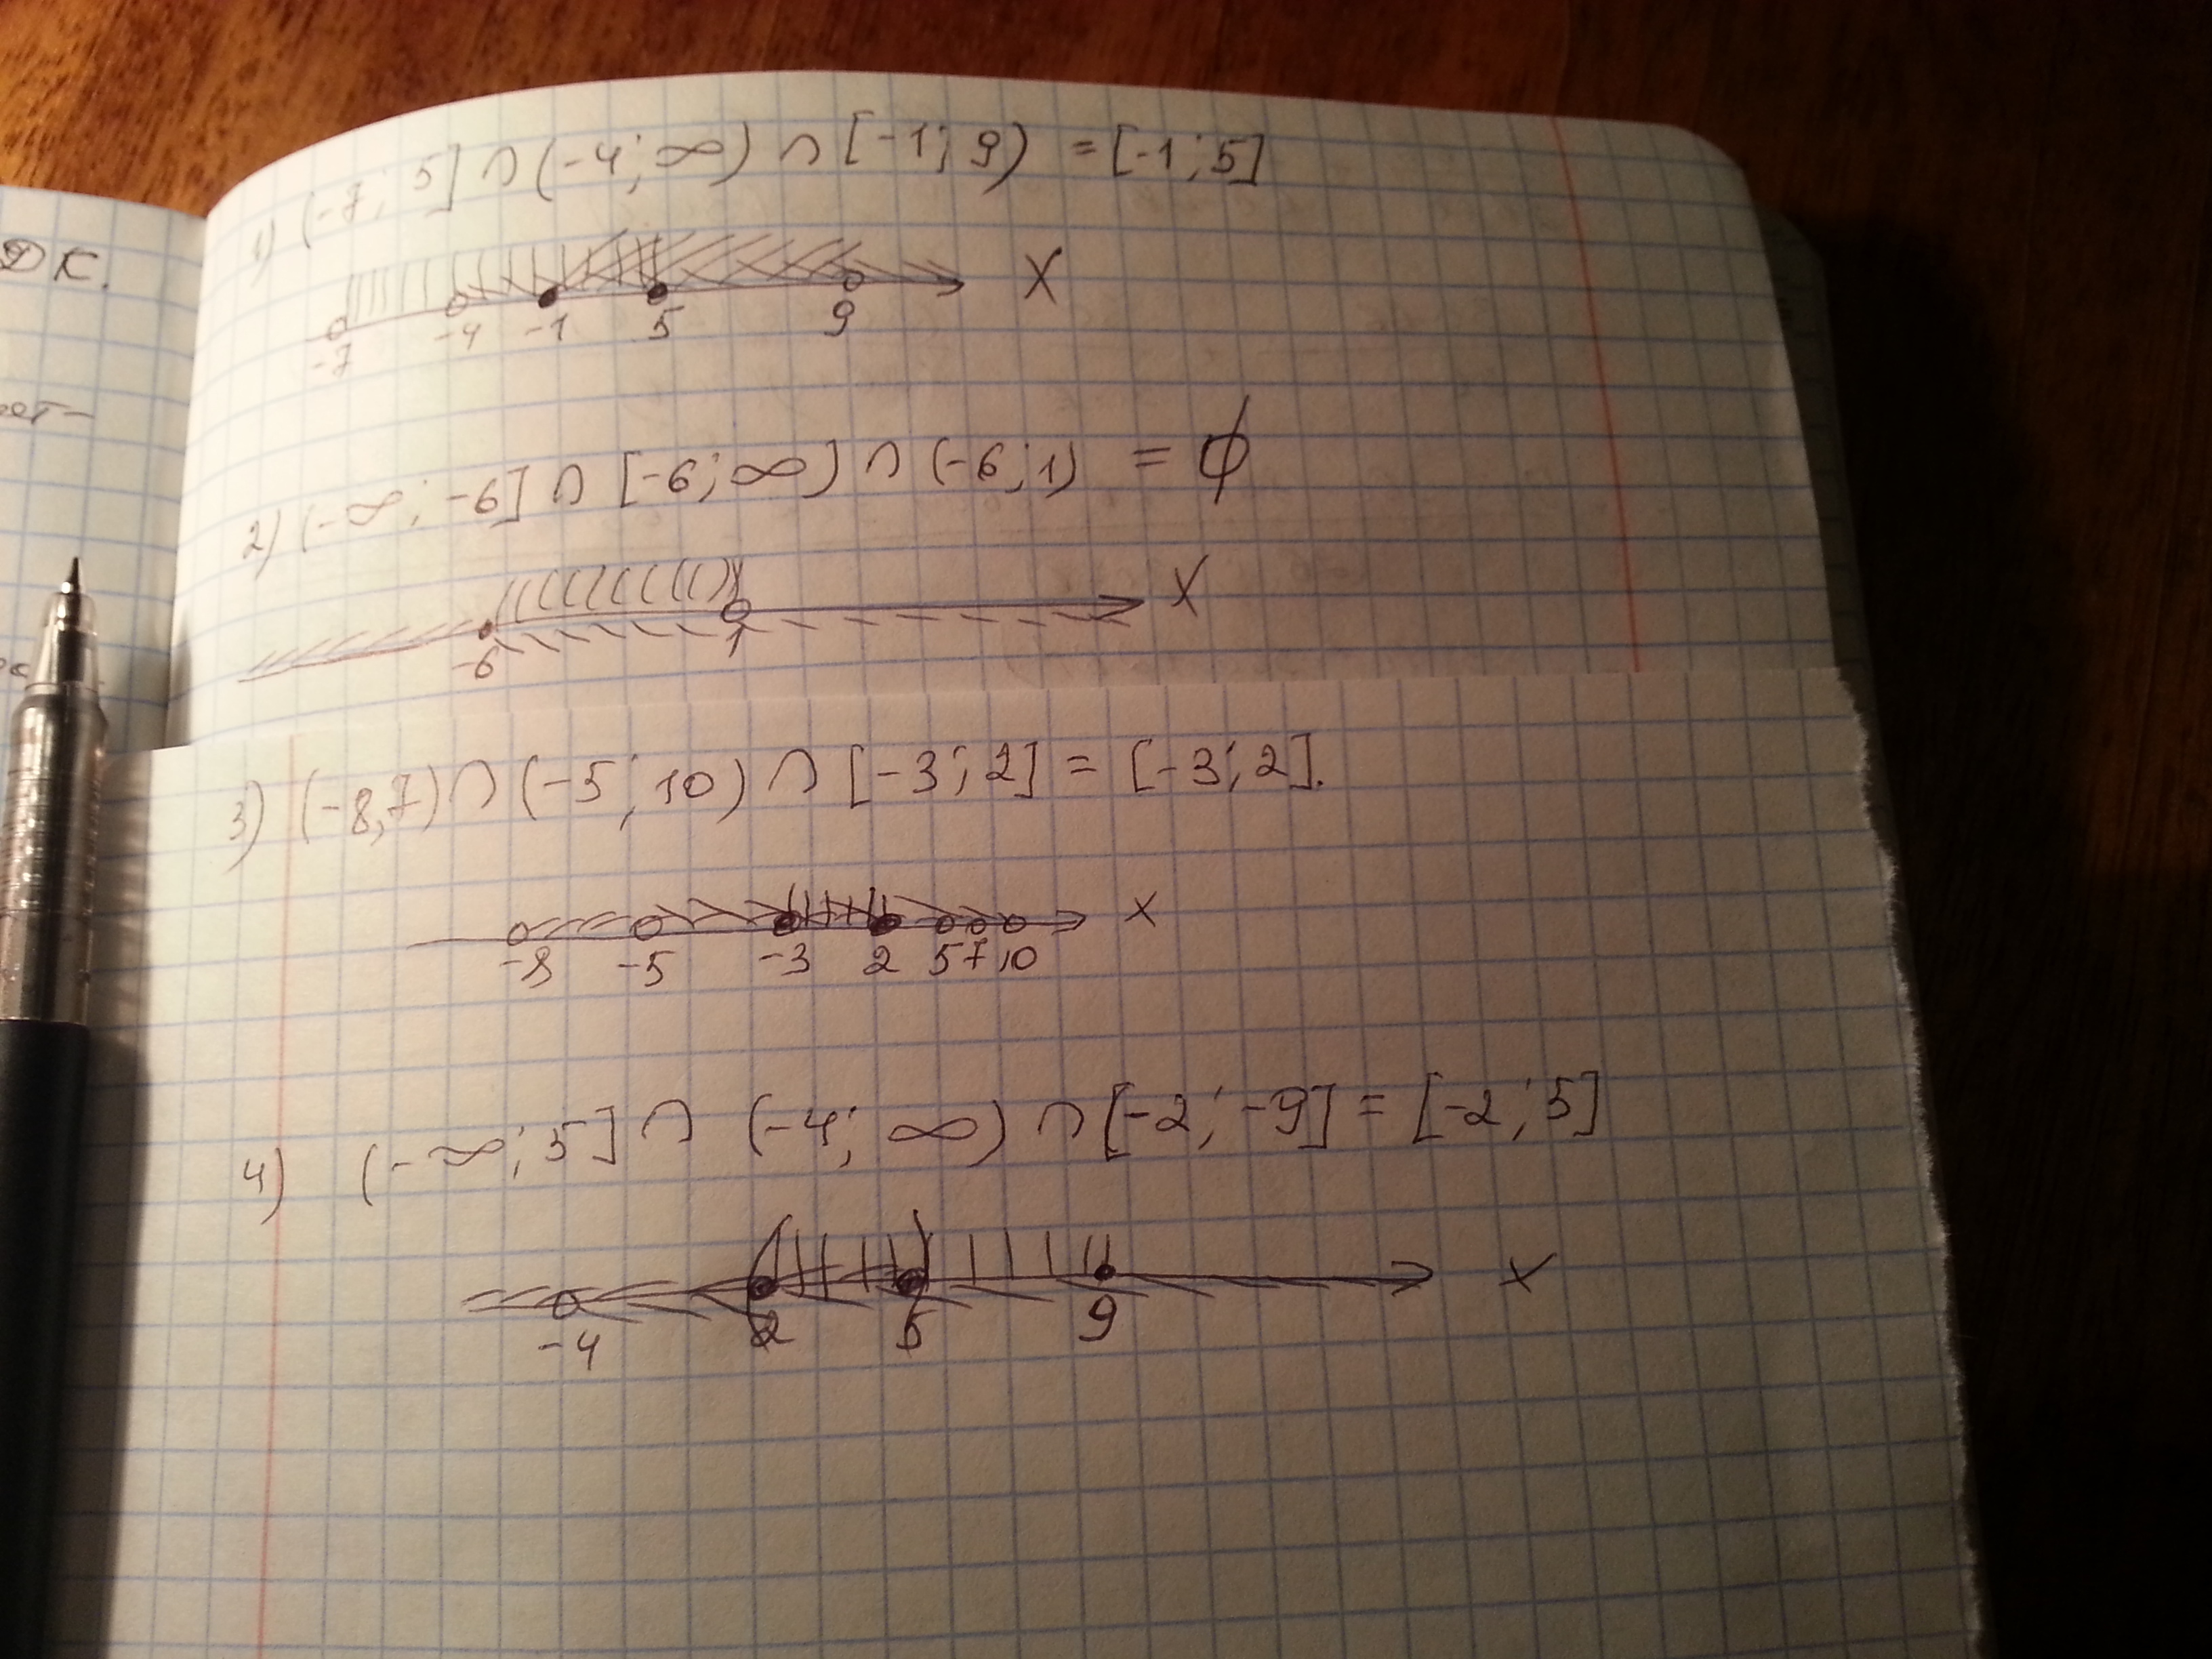 ДК.
1) (-7; 5] ∩ (-4; ∞) ∩ [-1; 9) = [-1; 5]
-7 -4 -1 5 9 X
2) (-∞; -6] ∩ [-6; ∞) ∩ (-6; 1) = ∅
-6 1 X
3) (-8,7) ∩ (-5; 10) ∩ [-3; 2] = [-3; 2].
-8 -5 -3 2 5 7 10 x
4) (-∞; 5] ∩ (-4; ∞) ∩ [-2; -9] = [-2; 5]
-4 2 5 9 x